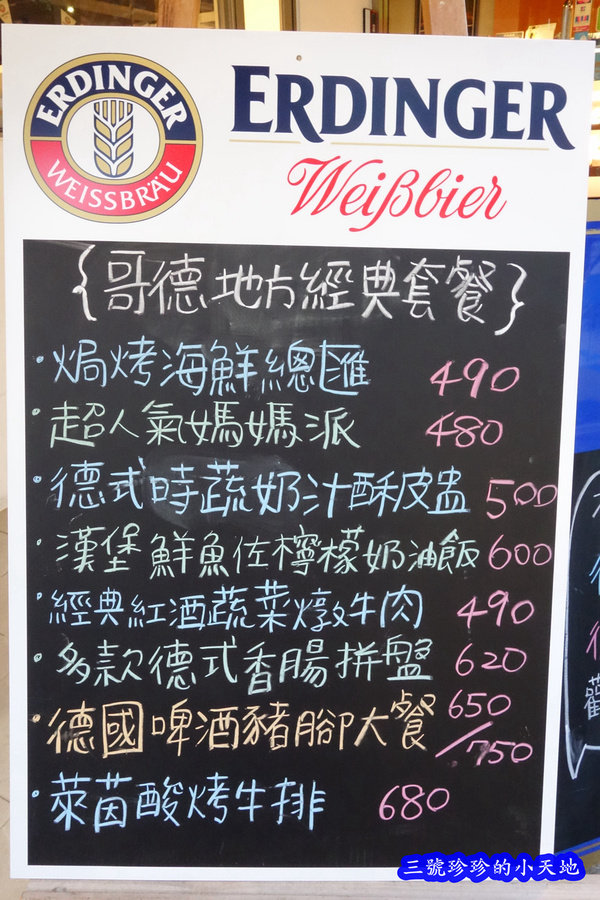 ERDINGER
WEISSBRÄU
ERDINGER
Weißbier
{哥德地方經典套餐}
·焗烤海鮮總匯 490
·超人氣媽媽派 480
·德式時蔬奶汁酥皮盅 500
·漢堡鮮魚佐檸檬奶油飯 600
·經典紅酒蔬菜燉牛肉 490
·多款德式香腸拼盤 620
·德國啤酒豬腳大餐 650/750
·萊茵酸烤牛排 680
三號珍珍的小天地